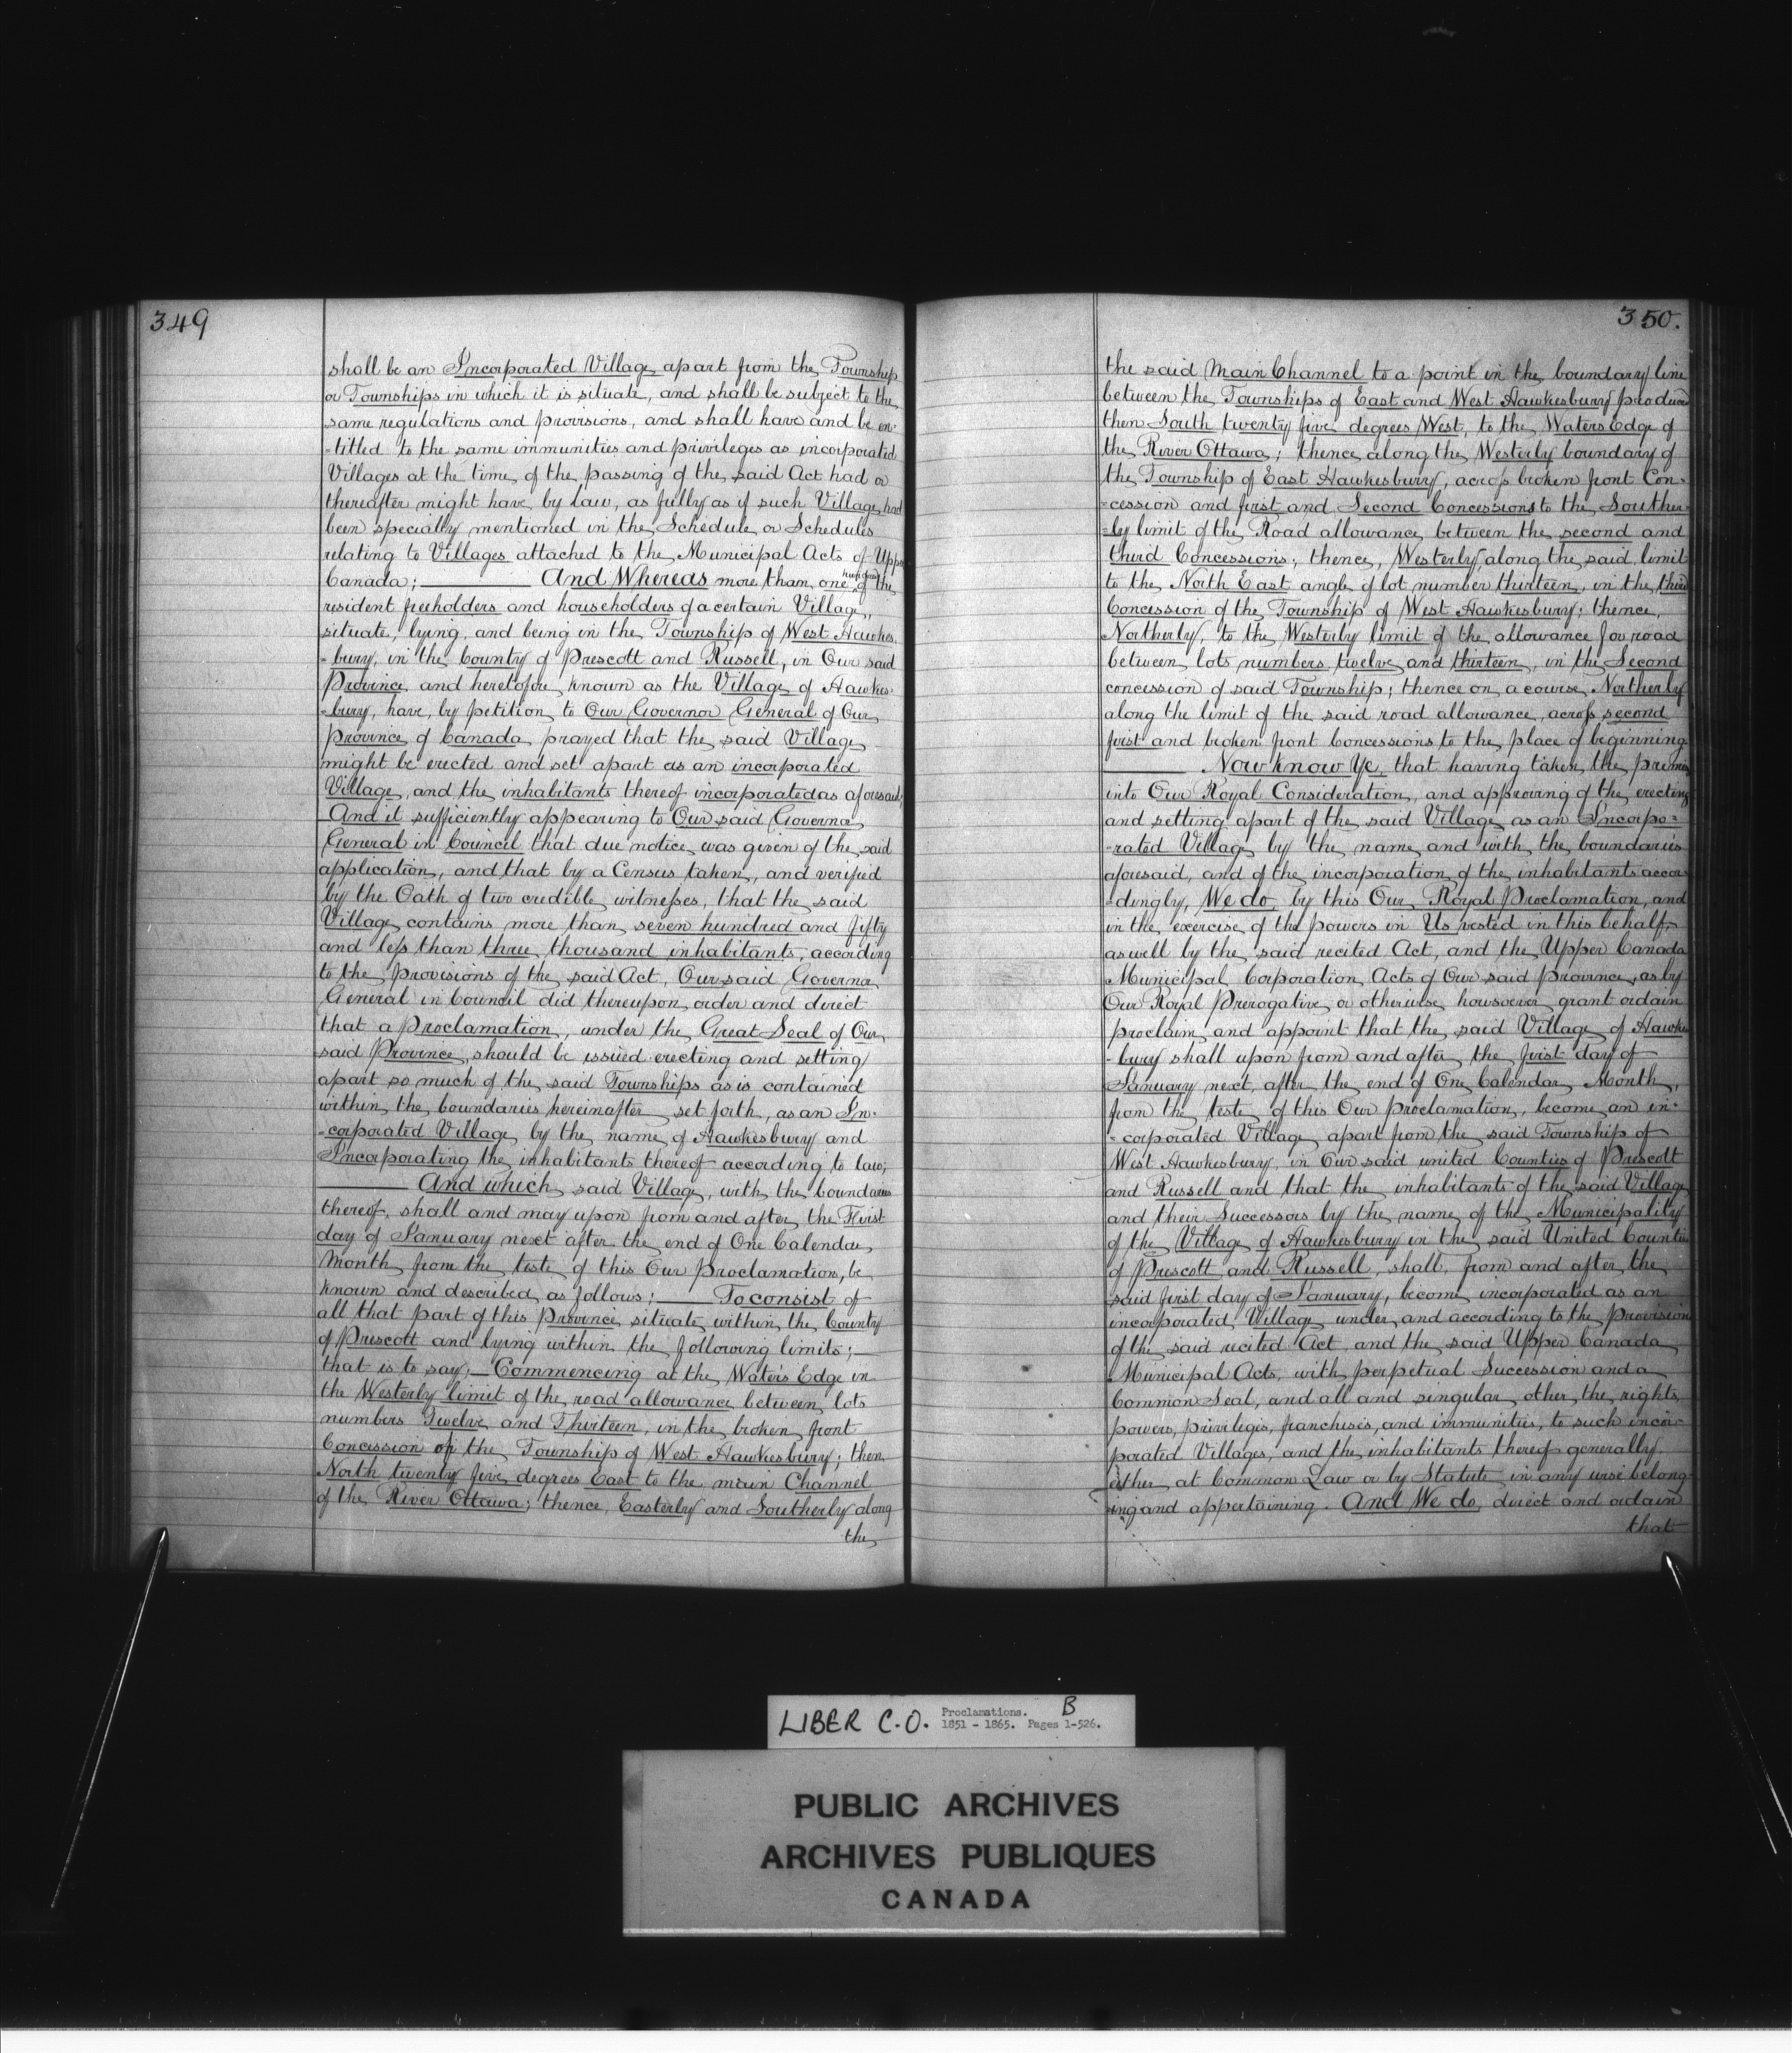 349
shall be an Incorporated Village apart from the Township
or Townships in which it is situate, and shall be subject to the
same regulations and provisions, and shall have and be en-
-titled to the same immunities and privileges as incorporated
Villages at the time of the passing of the said Act had or
thereafter might have by law, as fully as if such Village had
been specially mentioned in the Schedule or Schedules
relating to Villages attached to the Municipal Acts of Upper
Canada; And Whereas more than one hundred of the
resident freeholders and householders of a certain Village,
situate, lying, and being in the Township of West Hawkes-
-bury, in the County of Prescott and Russell, in Our said
Province and heretofore known as the Village of Hawkes-
-bury, have, by petition to Our Governor General of Our
Province of Canada prayed that the said Village
might be erected and set apart as an incorporated
Village, and the inhabitants thereof incorporated as aforesaid;
And it sufficiently appearing to Our said Governor
General in Council that due notice was given of the said
application, and that by a Census taken, and verified
by the Oath of two credible witnesses, that the said
Village contains more than seven hundred and fifty
and less than three thousand inhabitants, according
to the provisions of the said Act, Our said Governor
General in Council did thereupon order and direct
that a Proclamation, under the Great Seal of Our
said Province, should be issued erecting and setting
apart so much of the said Townships as is contained
within the boundaries hereinafter set forth, as an In-
-corporated Village by the name of Hawkesbury and
Incorporating the inhabitants thereof according to law;
And which said Village, with the boundaries
thereof, shall and may upon from and after the First
day of January next after the end of One Calendar
Month from the teste of this Our Proclamation, be
known and described as follows: To consist of
all that part of this Province situate within the County
of Prescott and lying within the following limits;—
that is to say;—Commencing at the Water's Edge in
the Westerly limit of the road allowance between lots
numbers Twelve and Thirteen, in the broken front
Concession of the Township of West Hawkesbury; then
North twenty five degrees East to the main Channel
of the River Ottawa; thence Easterly and Southerly along
the
350.
the said Main Channel to a point in the boundary line
between the Townships of East and West Hawkesbury produced
then South twenty five degrees West, to the Waters Edge of
the River Ottawa; thence along the Westerly boundary of
the Township of East Hawkesbury, across broken front Con-
-cession and first and Second Concessions to the Souther-
-ley limit of the Road allowance between the second and
third Concessions; thence, Westerly along the said limit
to the North East angle of lot number thirteen, in the third
Concession of the Township of West Hawkesbury; thence,
Northerly, to the Westerly limit of the allowance for road
between lots numbers twelve and thirteen, in the Second
concession of said Township; thence on a course Northerly
along the limit of the said road allowance, across second
first and broken front Concessions to the place of beginning.
Now Know Ye, that having taken the premises
into Our Royal Consideration, and approving of the erecting
and setting apart of the said Village as an Incorpo-
-rated Village by the name and with the boundaries
aforesaid, and of the incorporation of the inhabitants accor-
-dingly, We do by this Our Royal Proclamation, and
in the exercise of the powers in Us vested in this behalf,
as well by the said recited Act, and the Upper Canada
Municipal Corporation Acts of Our said Province, as by
Our Royal Prerogative or otherwise howsoever grant ordain
proclaim and appoint that the said Village of Hawkes
-bury shall upon from and after the first day of
January next, after the end of One Calendar Month,
from the teste of this Our Proclamation, become an in-
-corporated Village apart from the said Township of
West Hawkesbury in Our said united Counties of Prescott
and Russell and that the inhabitants of the said Village
and their Successors by the name of the Municipality
of the Village of Hawkesbury in the said United Counties
of Prescott and Russell, shall, from and after the
said first day of January, become incorporated as an
incorporated Village under and according to the Provisions
of the said recited Act and the said Upper Canada
Municipal Acts, with perpetual Succession and a
Common Seal, and all and singular other the rights,
powers, privileges, franchises, and immunities, to such incor-
porated Villages, and the inhabitants thereof generally
either at Common Law or by Statute in any wise belong-
ing and appertaining. And We do, direct and ordain
that
LIBER C.O. Proclamations. B
1851 - 1865. Pages 1-526.
PUBLIC ARCHIVES
ARCHIVES PUBLIQUES
CANADA